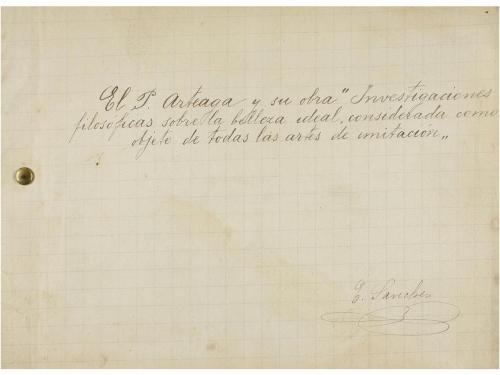 El P. Arteaga y su obra "Investigaciones
filosóficas sobre la belleza ideal, considerada como
objeto de todas las artes de imitación„
E. Sanchez